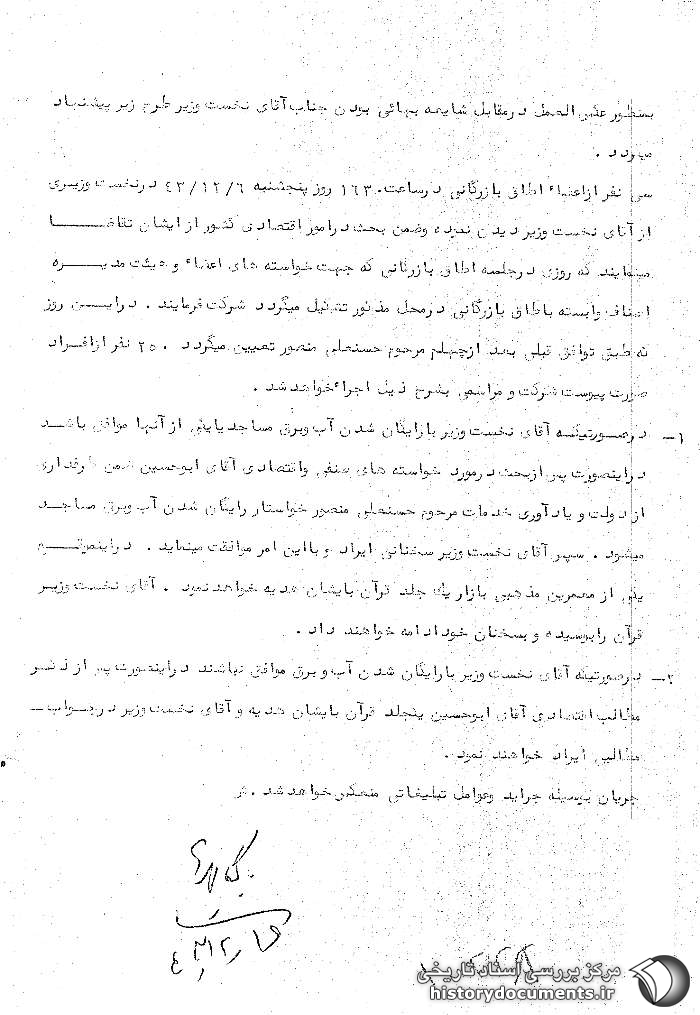 بمنظور عکس العمل در مقابل شایعه بهائی بودن جناب آقای نخست وزیر طرح زیر پیشنهاد
میگردد .
سی نفر از اعضاء اطاق بازرگانی در ساعت ۱۶۳۰ روز پنجشنبه ۴۳/۱۲/۶ در نخست وزیری
از آقای نخست وزیر دیدن نموده و ضمن بحث در امور اقتصادی کشور از ایشان تقاضا
مینمایند که روزی در جلسه اطاق بازرگانی که جهت خواسته های اعضاء و هیئت مدیره
اصناف وابسته باطاق بازرگانی در محل مذکور تشکیل میگردد شرکت فرمایند . در این روز
که طبق توافق قبلی بعد از چهلم مرحوم حسنعلی منصور تعیین میگردد . ۲۵۰ نفر از افراد
صورت پیوست شرکت و مراسمی بشرح ذیل اجراء خواهد شد .
۱ــ در صورتیکه آقای نخست وزیر با رایگان شدن آب و برق مساجد یا یکی از آنها موافق باشد
در اینصورت پس از بحث در مورد خواسته های صنفی و اقتصادی آقای ابوحسین ضمن طرفداری
از دولت و یادآوری خدمات مرحوم حسنعلی منصور خواستار رایگان شدن آب و برق مساجد
میشود . سپس آقای نخست وزیر سخنانی ایراد و با این امر موافقت مینماید . در اینموقع
یکی از معمرین مذهبی بازار یک جلد قرآن بایشان هدیه خواهد نمود . آقای نخست وزیر
قرآن را بوسیده و بسخنان خود ادامه خواهند داد .
۲ــ در صورتیکه آقای نخست وزیر با رایگان شدن آب و برق موافق نباشند در اینصورت پس از ذکر
مطالب اقتصادی آقای ابوحسین یکجلد قرآن بایشان هدیه و آقای نخست وزیر در جواب ــ
مطالبی ایراد خواهند نمود .
جریان بوسیله جراید و عوامل تبلیغاتی منعکس خواهد شد . ش
مرکز بررسی اسناد تاریخی
historydocuments.ir